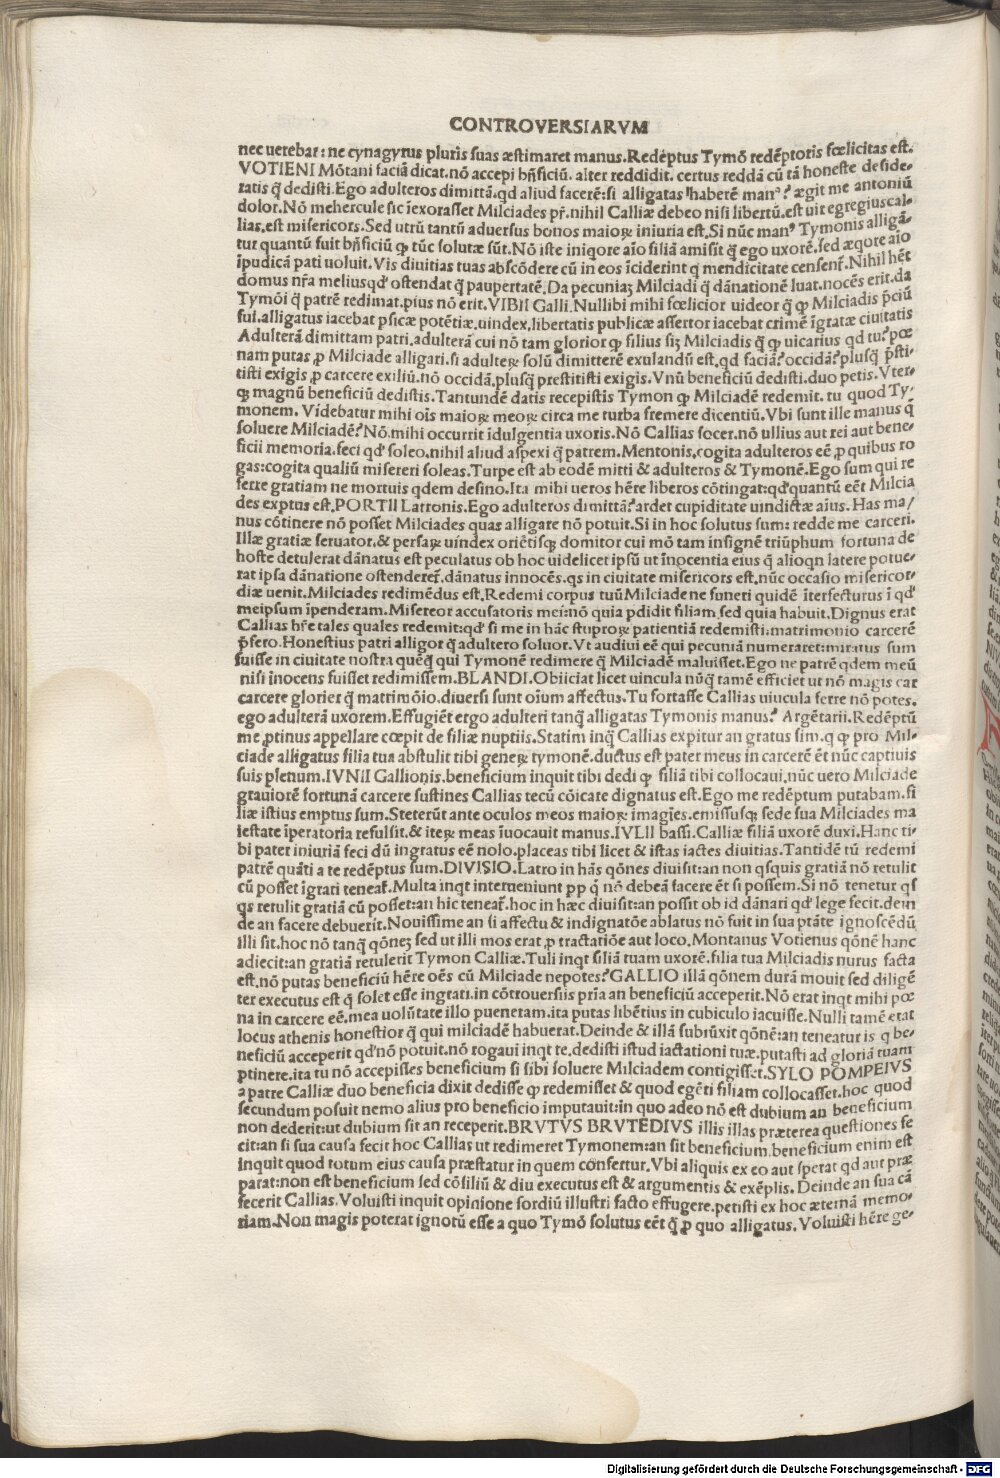 CONTROVERSIARVM
nec uerebat: ne cynagyrus pluris suas æstimaret manus. Redēptus Tymō redēptoris fœlicitas est.
VOTIENI Mōtani faciā dicat. nō accepi bn̄ficiū. alter reddidit. certus reddā cū tā honeste deside-
ratis q̄ dedisti. Ego adulteros dimittā. qd aliud facerē: si alligatas haberē man⁹? ægit me antoniū
dolor. Nō mehercule sic īexorasset Milciades pr̄. nihil Calliæ debeo nisi libertū. est uir egregius cal-
lias. est misericors. Sed utrū tantū aduersus bonos maior iniuria est. Si nūc man⁹ Tymonis alligā-
tur quantū fuit bn̄ficiū ꝙ tūc solutæ sūt. Nō iste iniqore aīo filiā amisit q̄ ego uxorē. sed æqore aīo
īpudicā pati uoluit. Vis diuitias tuas abscōdere cū in eos īciderint q mendicitate censent̄. Nihil hēt
domus nr̄a melius qd' ostendat q̄ paupertatē. Da pecuniaꝫ Milciadi q̄ dānationē luat. nocēs erit. da
Tymōi q̄ patrē redimat. pius nō erit. VIBII Galli. Nullibi mihi fœlicior uideor q̄ ꝙ Milciadis p̄ciū
fui. alligatus iacebat psicæ potētiæ. uindex. libertatis publicæ assertor iacebat crimē īgratæ ciuitatis
Adulterā dimittam patri. adulterā cui nō tam glorior ꝙ filius siꝫ Milciadis q̄ ꝙ uicarius qd tu? pœ
nam putas ꝓ Milciade alligari. si adulteꝝ solū dimitterē exulandū est. qd faciā? occidā? plusq̄ p̄sti-
tisti exigis ꝓ carcere exiliū. nō occidā. plusq̄ prestitisti exigis. Vnū beneficiū dedisti. duo petis. Vter-
qꝫ magnū beneficiū dedistis. Tantundē datis recepistis Tymon ꝙ Milciadē redemit. tu quod Ty-
monem. Videbatur mihi oīs maioꝝ meoꝝ circa me turba fremere dicentiū. Vbi sunt ille manus q̄
soluere Milciadē? Nō. mihi occurrit īdulgentia uxoris. Nō Callias socer. nō ullius aut rei aut bene-
ficii memoria. feci qd' soleo. nihil aliud aspexi q̄ patrem. Mentonis. cogita adulteros eē ꝓ quibus ro
gas: cogita qualiū misereri soleas. Turpe est ab eodē mitti & adulteros & Tymonē. Ego sum qui re
ferre gratiam ne mortuis qdem desino. Ita mihi ueros hēre liberos cōtingat: qd' quantū eēt Milcia
des exptus est. PORTII Latronis. Ego adulteros dimittā? ardet cupiditate uindictæ aīus. Has ma/
nus cōtinere nō posset Milciades quas alligare nō potuit. Si in hoc solutus sum: redde me carceri.
Illæ gratiæ seruator. & persaꝝ uindex oriētisqꝫ domitor cui mō tam insignē triūphum fortuna de
hoste detulerat dānatus est peculatus ob hoc uidelicet ipsū ut īnocentia eius q̄ alioqn latere potue-
rat ipsa dānatione ostenderet̄. dānatus innocēs. qs in ciuitate misericors est. nūc occasio misericor-
diæ uenit. Milciades redimēdus est. Redemi corpus tuū Milciade ne funeri quidē īterfecturus ī qd'
meipsum īpenderam. Misereor accusatoris mei: nō quia pdidit filiam. sed quia habuit. Dignus erat
Callias hr̄e tales quales redemit: qd' si me in hāc stuproꝝ patientiā redemisti: matrimonio carcerē
p̄fero. Honestius patri alligor q̄ adultero soluor. Vt audiui eē qui pecuniā numeraret: miratus sum
fuisse in ciuitate nostra quēq̄ qui Tymonē redimere q̄ Milciadē maluisset. Ego ne patrē qdem meū
nisi īnocens fuisset redimissem. BLANDI. Obiiciat licet uincula nūq̄ tamē efficiet ut nō magis car
carcere glorier q̄ matrimōio. diuersi sunt oīum affectus. Tu fortasse Callias uiucula ferre nō potes.
ego adulterā uxorem. Effugiēt ergo adulteri tanq̄ alligatas Tymonis manus? Argētarii. Redēptū
me ꝓtinus appellare cœpit de filiæ nuptiis. Statim inq̄ Callias expitur an gratus sim. q ꝙ pro Mil-
ciade alligatus filia tua abstulit tibi geneꝝ tymonē. ductus est pater meus in carcerē ēt nūc captiuis
suis plenum. IVNII Gallionis. beneficium inquit tibi dedi ꝙ filiā tibi collocaui. nūc uero Milciade
grauiorē fortunā carcere sustines Callias tecū cōicare dignatus est. Ego me redēptum putabam. fi
liæ istius emptus sum. Steterūt ante oculos meos maioꝝ imagīes. emissusqꝫ sede sua Milciades ma
iestate īperatoria refulsit. & iteꝝ meas īuocauit manus. IVLII bassū. Calliæ filiā uxorē duxi. Hanc ti-
bi pater iniuriā feci dū ingratus eē nolo. placeas tibi licet & istas iactes diuitias. Tantidē tū redemi
patrē quāti a te redēptus sum. DIVISIO. Latro in hās qōnes diuisit: an non qsquis gratiā nō retulit
cū posset īgrati teneat̄. Multa inqt interueniunt pp q̄ nō debeā facere ēt si possem. Si nō tenetur qs
qs retulit gratiā cū posset: an hic teneat̄. hoc in hæc diuisit: an possit ob id dānari qd' lege fecit. dein
de an facere debuerit. Nouissime an si affectu & indignatōe ablatus nō fuit in sua ptāte ignoscēdū
illi sit. hoc nō tanq̄ qōneꝫ sed ut illi mos erat ꝓ tractatiōe aut loco. Montanus Votienus qōnē hanc
adiecit: an gratiā retulerit Tymon Calliæ. Tuli inqt filiā tuam uxorē. filia tua Milciadis nurus facta
est. nō putas beneficiū hēre oēs cū Milciade nepotes? GALLIO illā qōnem durā mouit sed diligē
ter executus est q̄ solet esse ingrati. in cōtrouersiis pr̄ia an beneficiū acceperit. Nō erat inqt mihi pœ
na in carcere eē. mea uolūtate illo pueneram. ita putas libētius in cubiculo iacuisse. Nulli tamē erat
locus athenis honestior q̄ qui milciadē habuerat. Deinde & illā subiūxit qōnē: an teneatur is q be-
neficiū acceperit qd' nō potuit. nō rogaui inqt te. dedisti istud iactationi tuæ. putasti ad gloriā tuam
ꝑtinere. ita tu nō accepisses beneficium si sibi soluere Milciadem contigisset. SYLO POMPEIVS
a patre Calliæ duo beneficia dixit dedisse ꝙ redemisset & quod egēti filiam collocasset. hoc quod
secundum posuit nemo alius pro beneficio imputauit: in quo adeo nō est dubium an beneficium
non dederit: ut dubium sit an receperit. BRVTVS BRVTEDIVS illis illas præterea questiones fe
cit: an si sua causa fecit hoc Callias ut redimeret Tymonem: an sit beneficium. beneficium enim est
inquit quod totum eius causa præstatur in quem cōnfertur. Vbi aliquis ex eo aut sperat qd aut præ
parat: non est beneficium sed cōsiliū & diu executus est & argumentis & exēplis. Deinde an sua cā
fecerit Callias. Voluisti inquit opinione sordiū illustri facto effugere. petisti ex hoc æternā memo-
riam. Non magis poterat ignotū esse a quo Tymō solutus eēt q̄ ꝓ quo alligatus. Voluisti hēre ge-
Digitalisierung gefördert durch die Deutsche Forschungsgemeinschaft - DFG